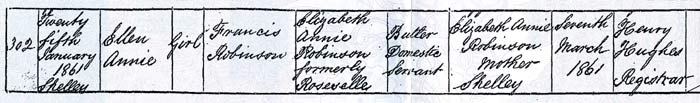 302
Twenty
fifth
January
1861
Shelley
Ellen
Annie
Girl
Francis
Robinson
Elizabeth
Annie
Robinson
formerly
Roseveller
Butler
Domestic
Servant
Elizabeth Annie
Robinson
Mother
Shelley
Seventh
March
1861
Henry
Hughes
Registrar